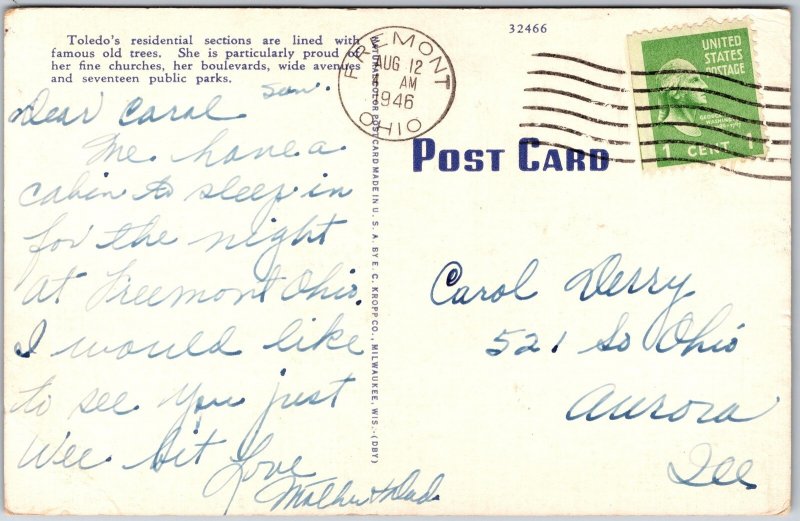 Toledo's residential sections are lined with
famous old trees. She is particularly proud of
her fine churches, her boulevards, wide avenues
and seventeen public parks.
32466
FREMONT
AUG 12
AM
1946
OHIO
UNITED
STATES
POSTAGE
1 CENT 1
POST CARD
NATURAL COLOR POST CARD MADE IN U. S. A. BY E. C. KROPP CO., MILWAUKEE, WIS.-(DBY)
Sun.
Dear Carol
We have a
cabin to sleep in
for the night
at Freemont Ohio.
I would like
to see you just
wee bit
Love
Mother & Dad
Carol Derry
521 So Ohio
Aurora
Ill